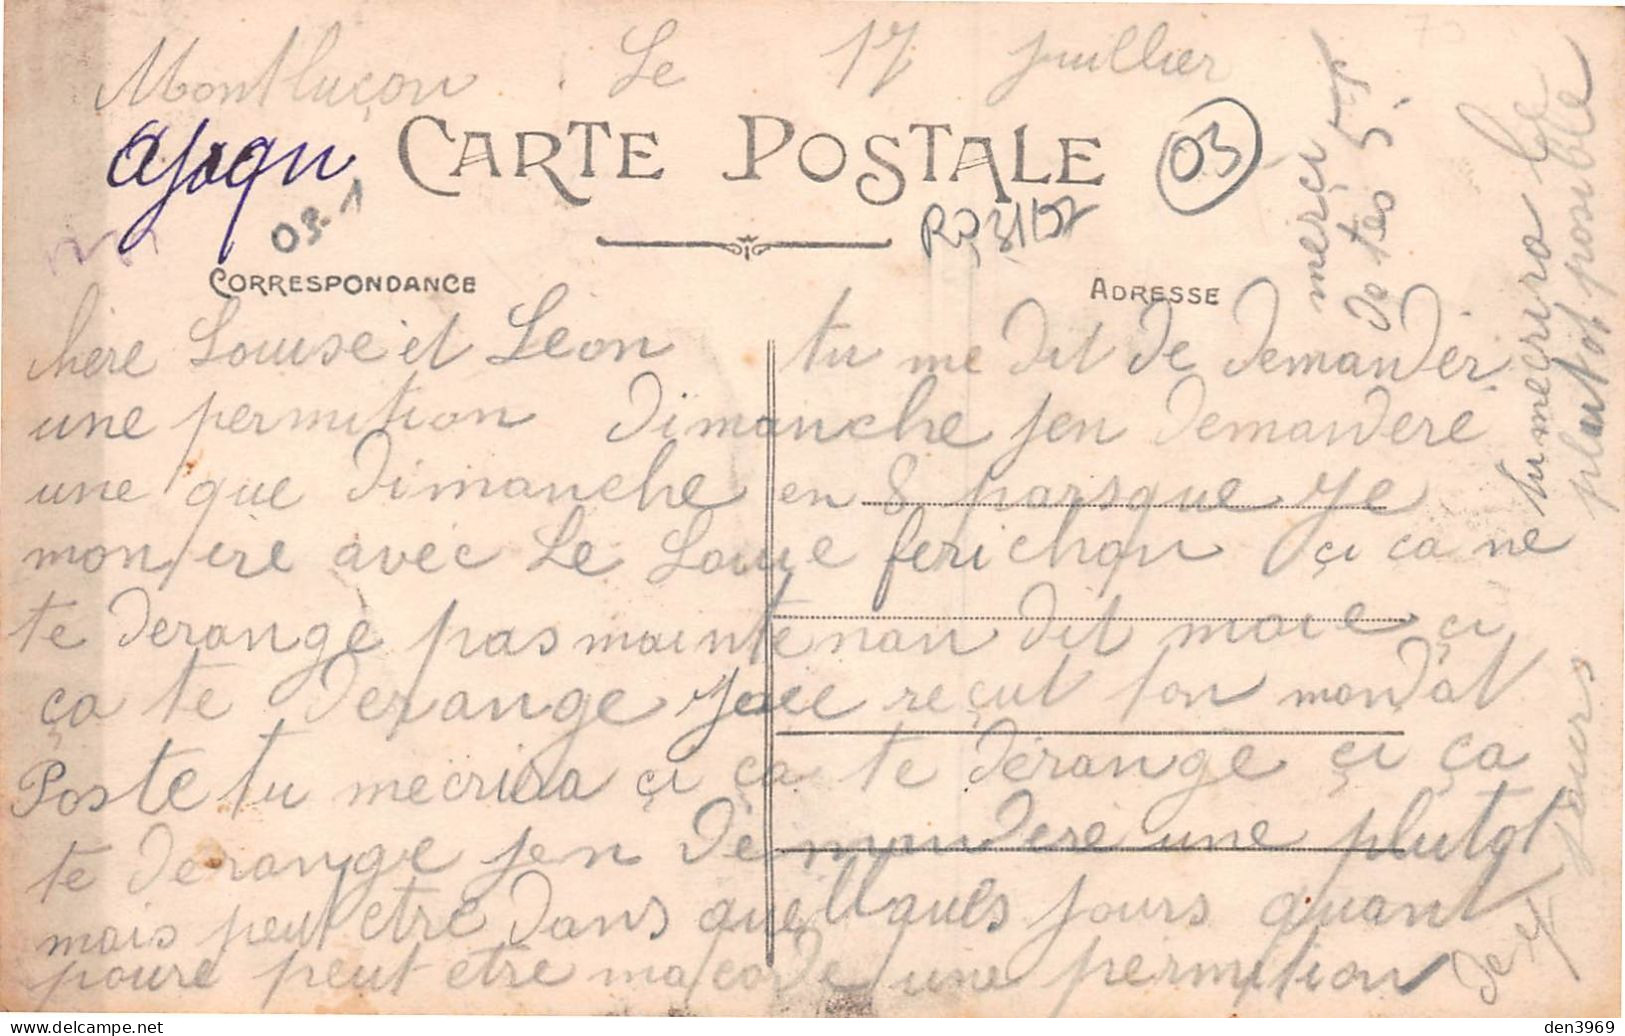 Montluçon Le 17 juillier
CARTE POSTALE
03
03-1
CORRESPONDANCE
ADRESSE
hère Louise et Léon tu me dit de demander
une permition dimanche jen demandere
une que dimanche en 8 parsque je
montire avec Le Loui e ferichon çi ça ne
te derange pas maintenan dit moie çi
ça te derange jaie reçut ton mondat
Poste tu mecrira çi ça te dérange çi ça
te derange jen demandere une plutot
mais peut etre dans quellques jours quant
poure peut etre macorde une permition
de 4 jours
tu mecrira Le
plutot posible
merçi
de tes 5 f
den3969